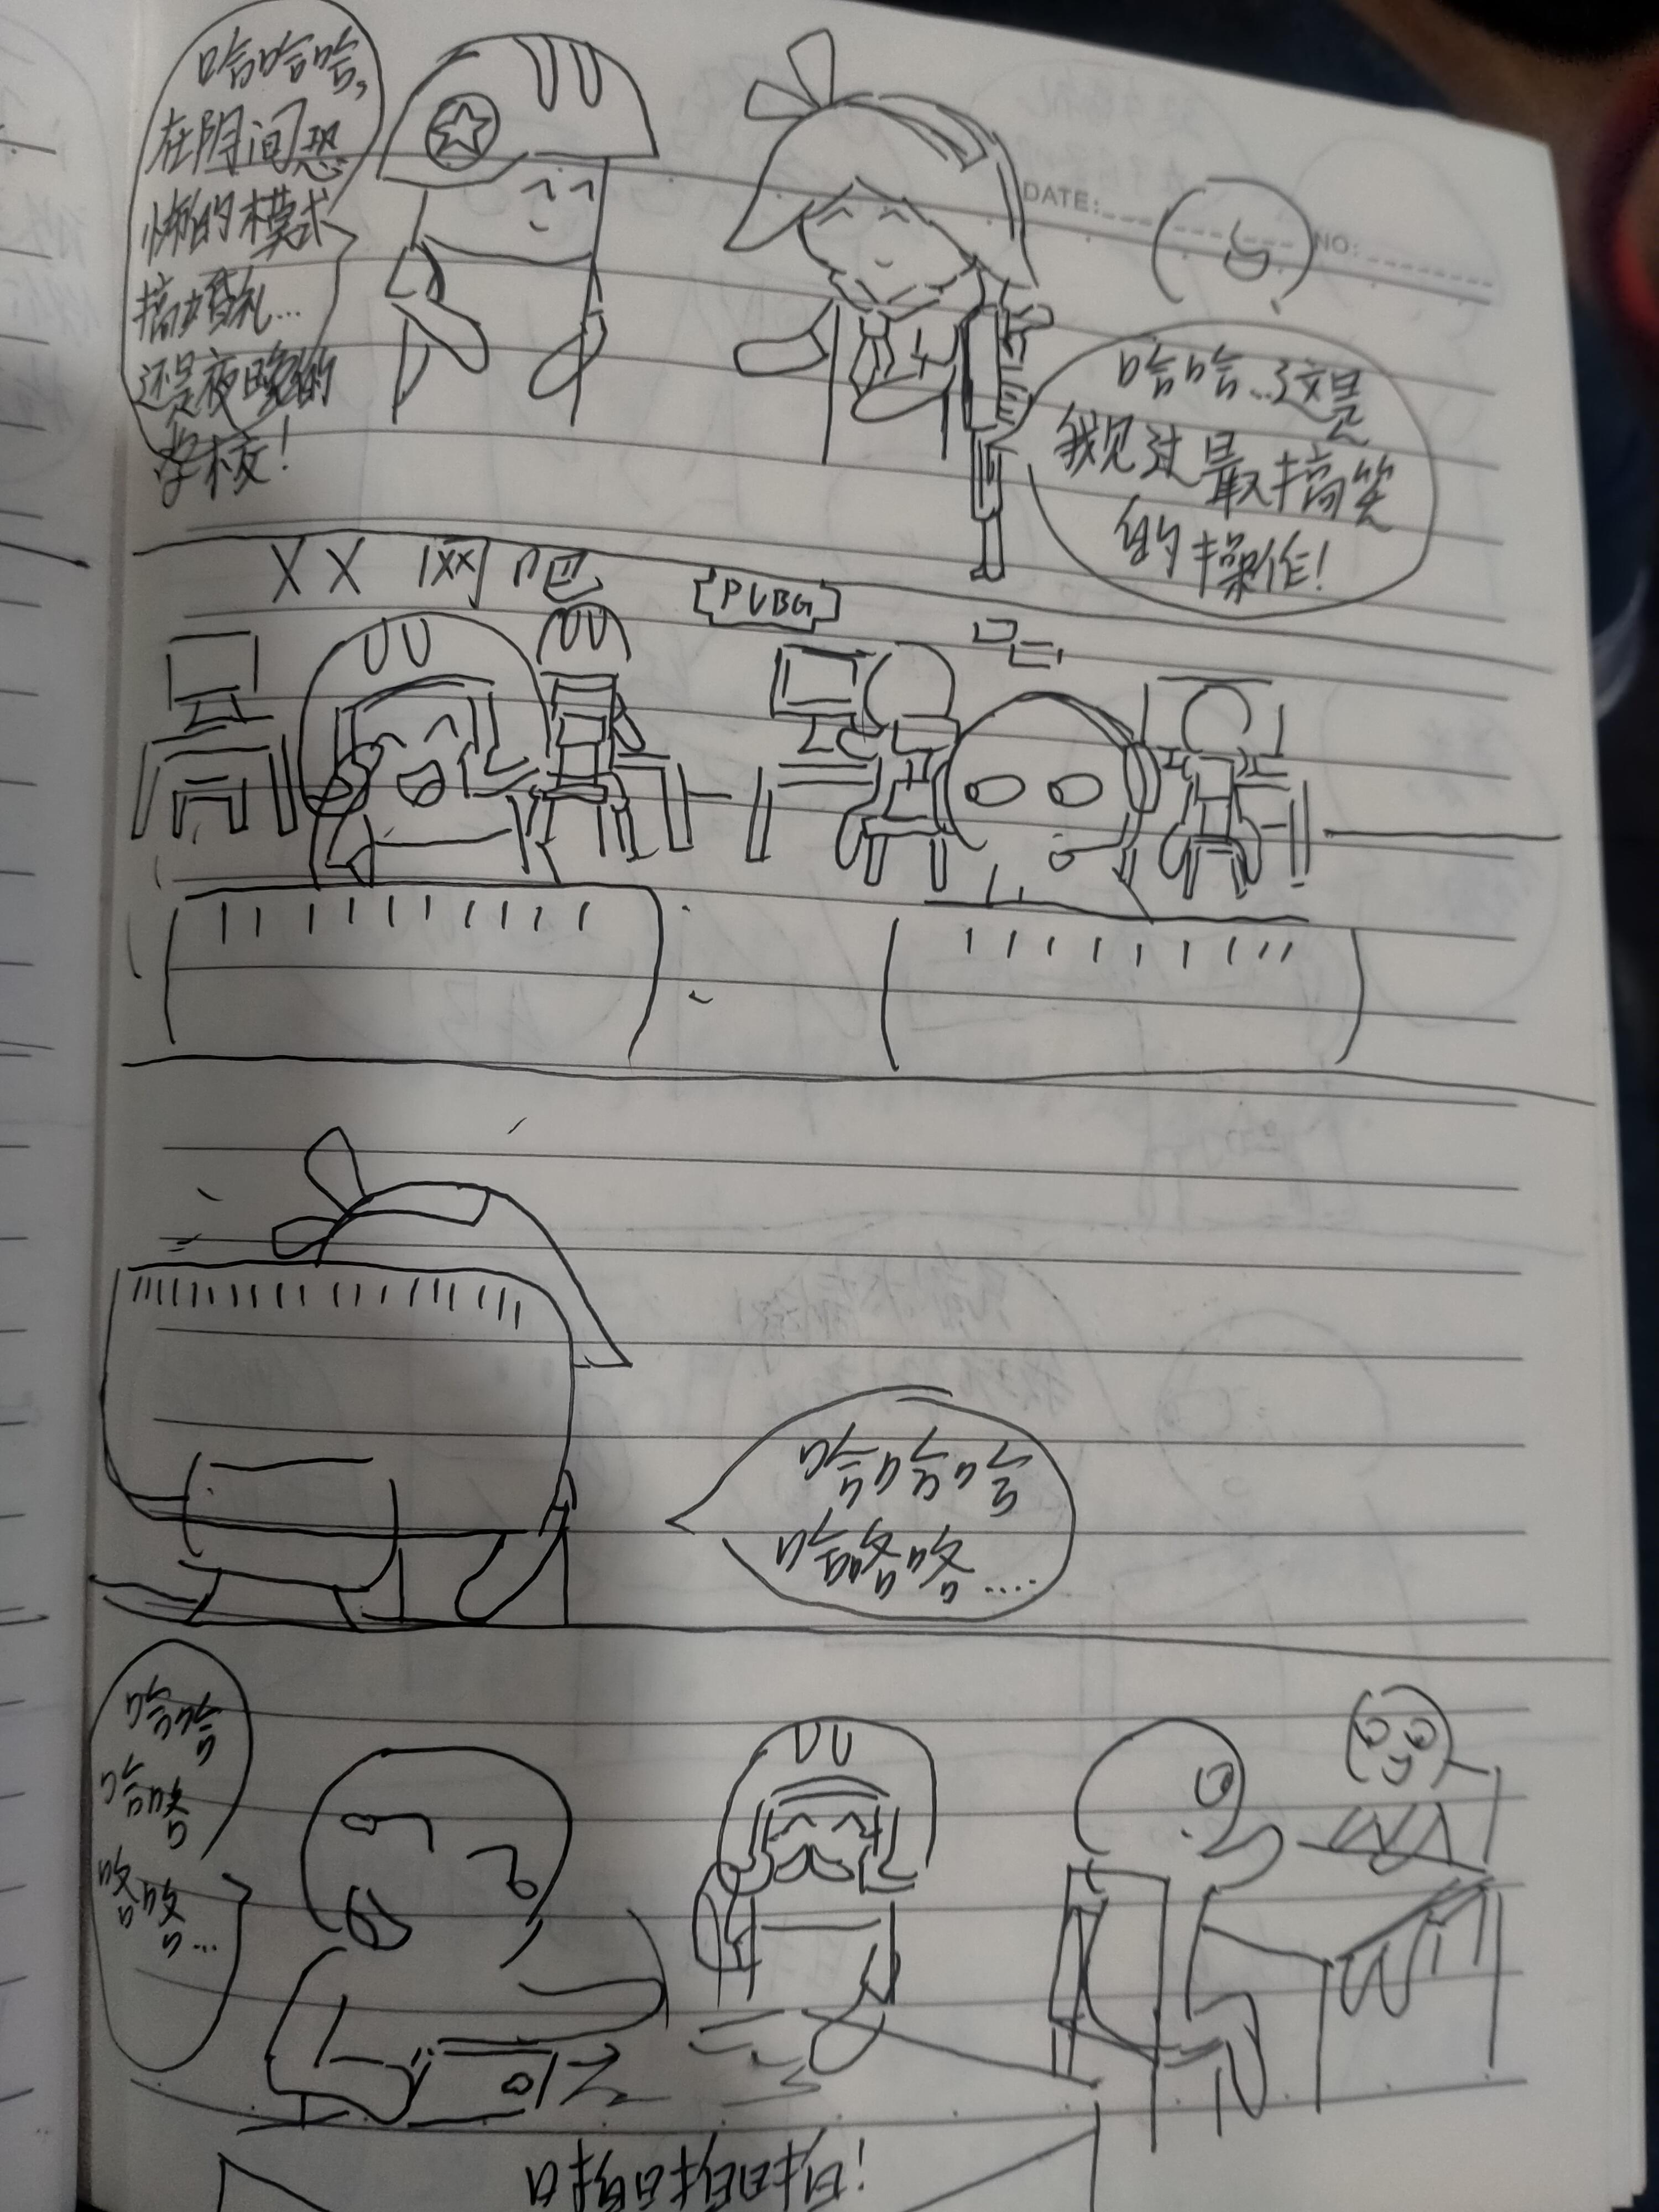 哈哈哈,
在阴间恐
怖的模式
搞婚礼...
还是夜晚的
学校!
DATE:
NO:
哈哈...这是
我见过最搞笑
的操作!
XX 网吧
PUBG
哈哈哈
哈咯咯....
哈哈
哈咯
咯咯...